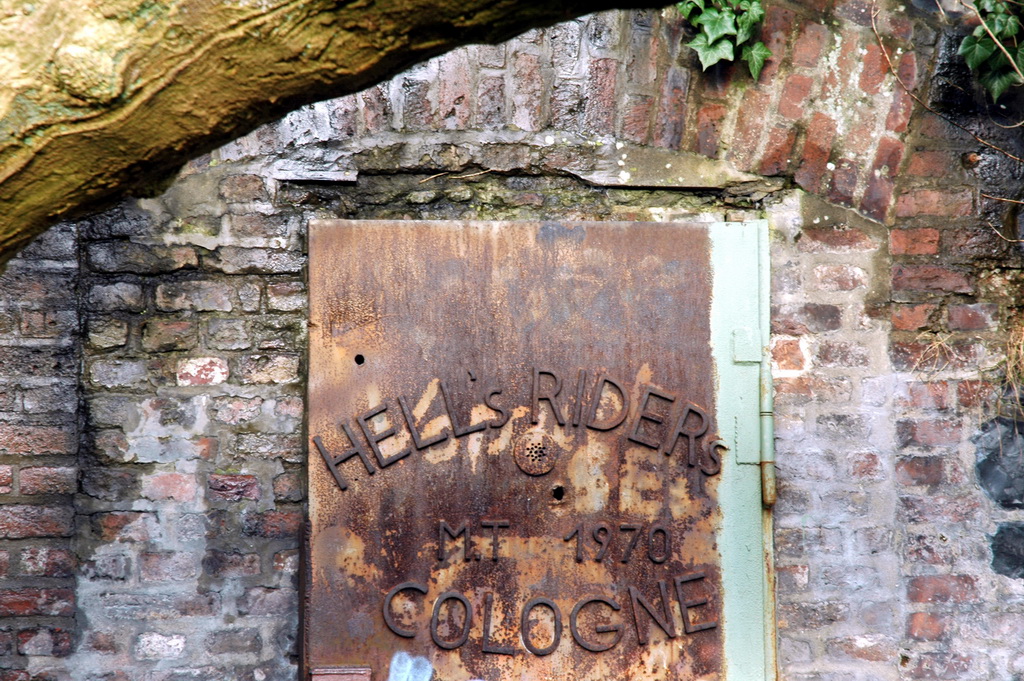 HELL's RIDERs
M.T 1970
COLOGNE